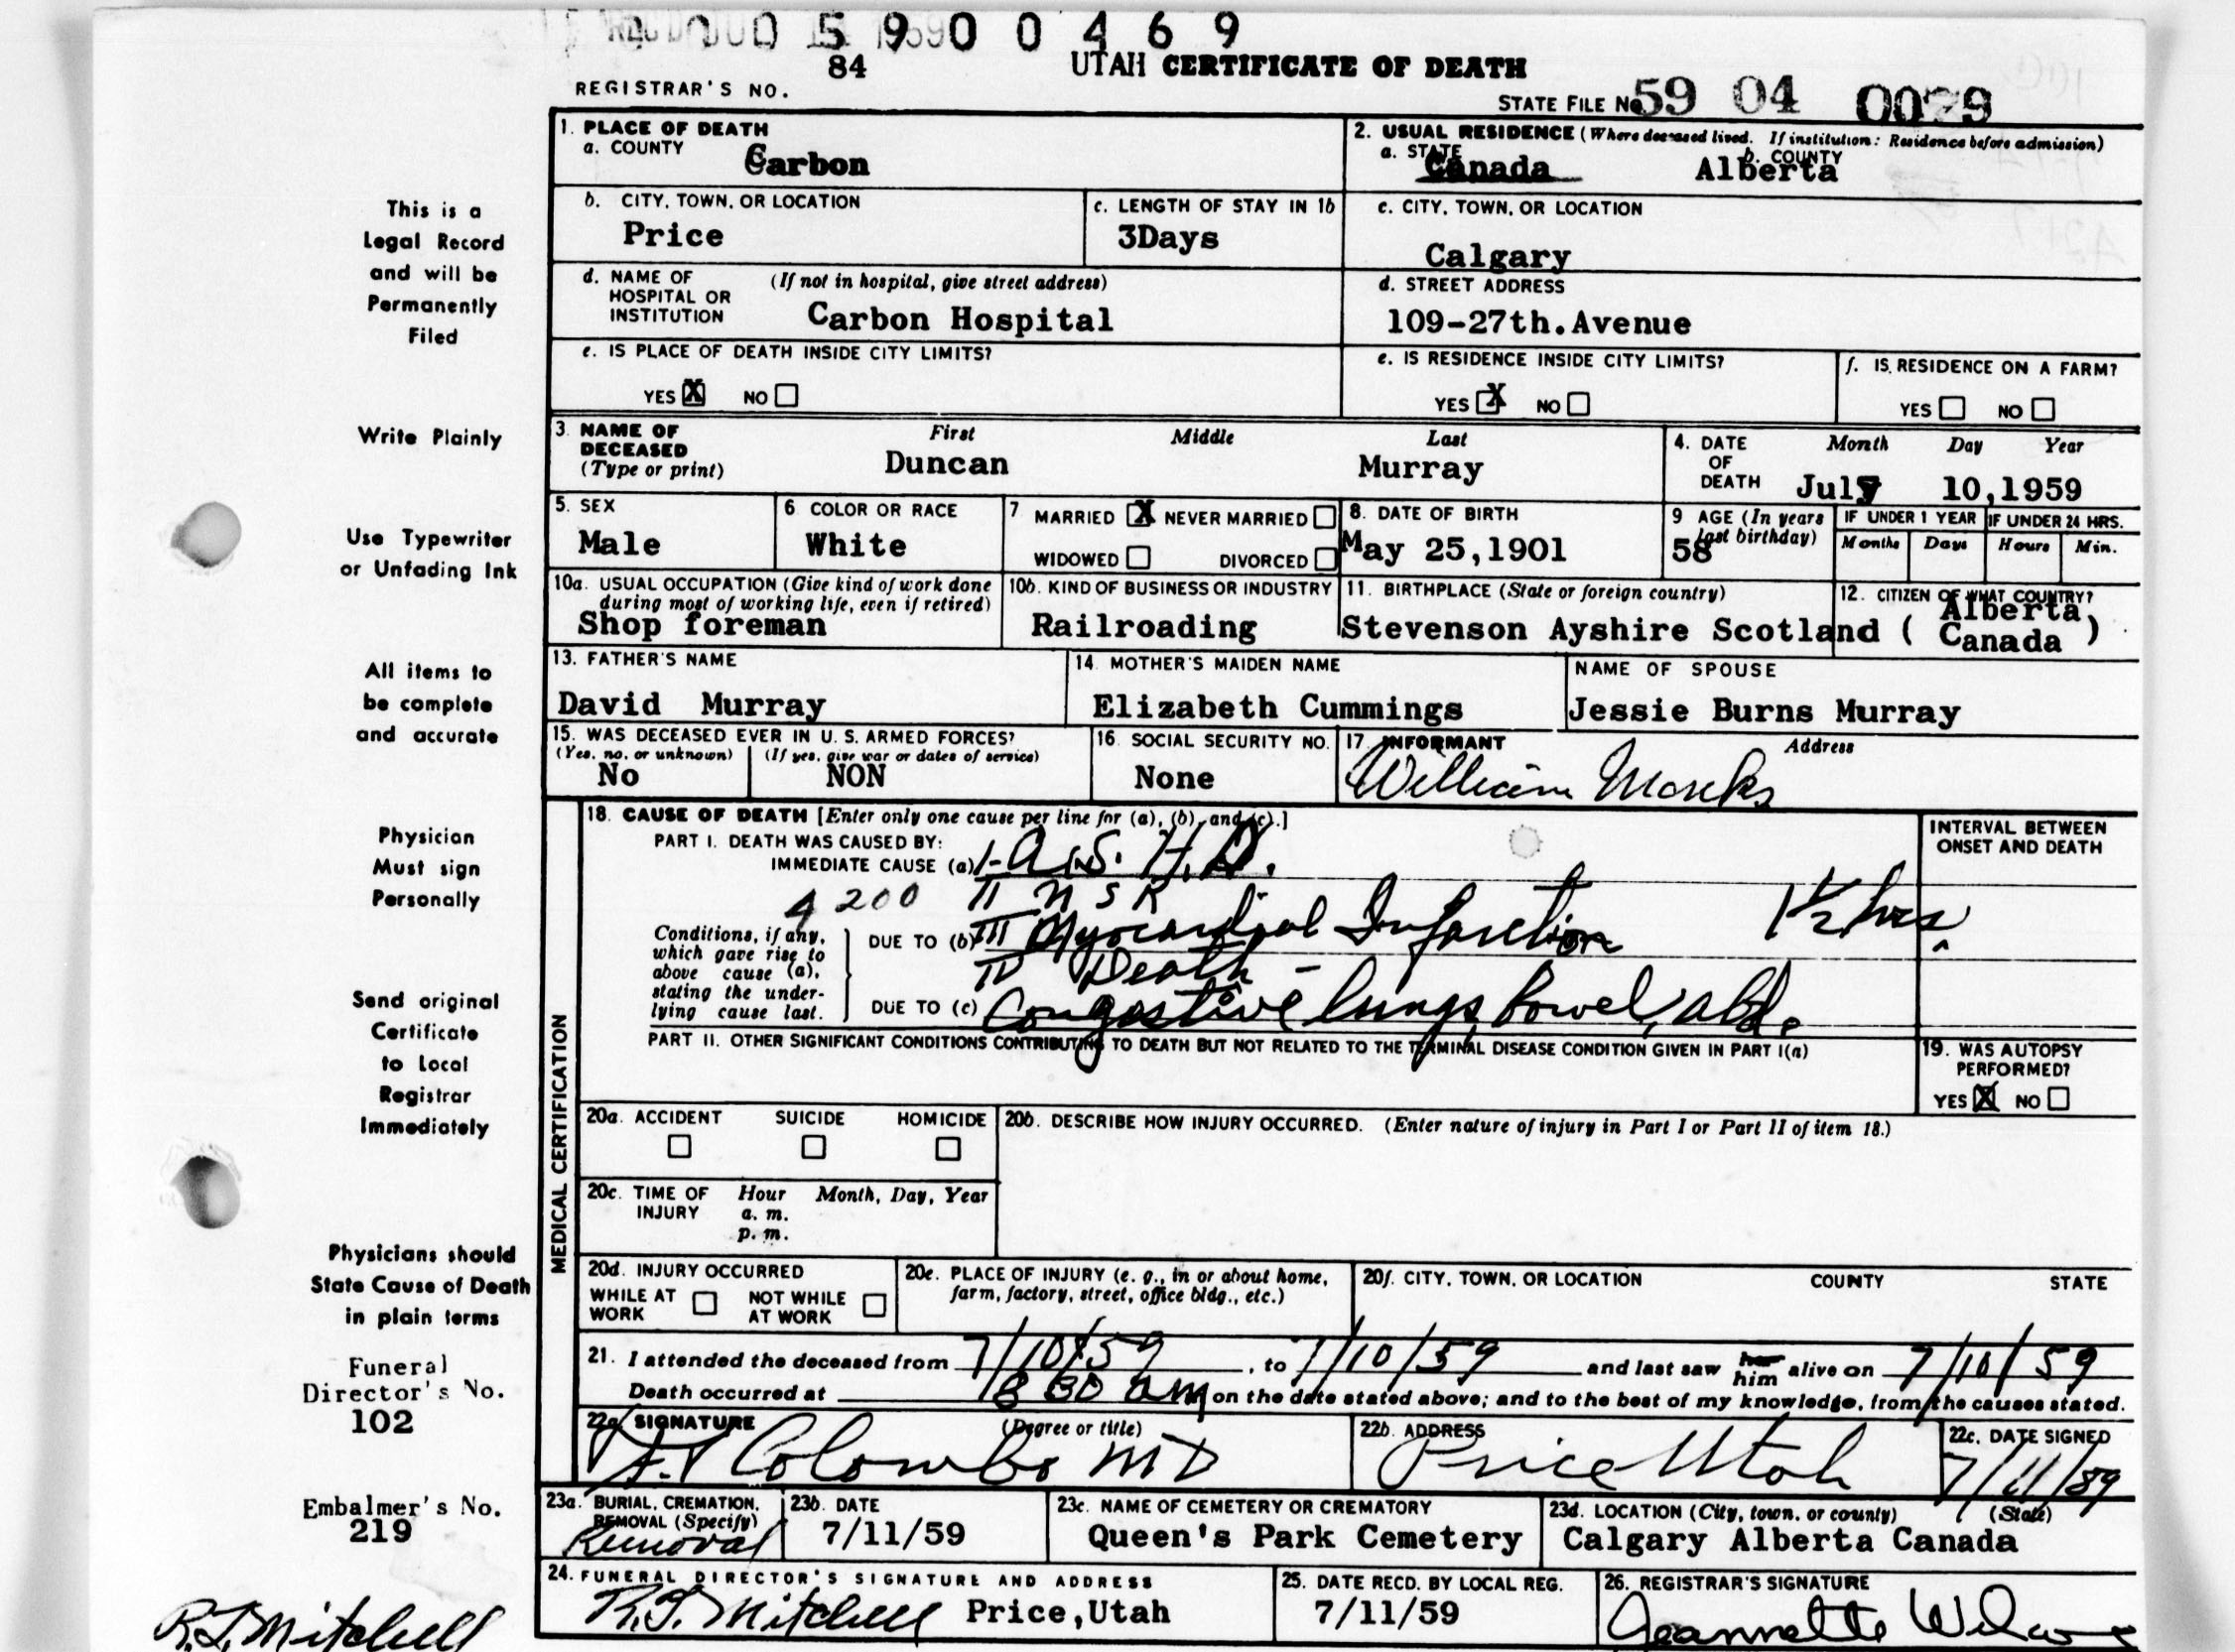 0 0 5 9 0 0 4 6 9
84
UTAH CERTIFICATE OF DEATH
REGISTRAR'S NO.
STATE FILE No 59 04
1. PLACE OF DEATH
a. COUNTY Carbon
2. USUAL RESIDENCE (Where deceased lived. If institution: Residence before admission)
a. STATE Canada b. COUNTY Alberta
b. CITY, TOWN, OR LOCATION
Price
c. LENGTH OF STAY IN 1b
3Days
c. CITY, TOWN, OR LOCATION
Calgary
d. NAME OF HOSPITAL OR INSTITUTION (If not in hospital, give street address)
Carbon Hospital
d. STREET ADDRESS
109-27th.Avenue
e. IS PLACE OF DEATH INSIDE CITY LIMITS?
YES X NO
e. IS RESIDENCE INSIDE CITY LIMITS?
YES X NO
f. IS RESIDENCE ON A FARM?
YES NO
3. NAME OF DECEASED (Type or print)
First Middle Last
Duncan Murray
4. DATE OF DEATH Month Day Year
July 10,1959
5. SEX
Male
6 COLOR OR RACE
White
7 MARRIED X NEVER MARRIED
WIDOWED DIVORCED
8. DATE OF BIRTH
May 25,1901
9 AGE (In years last birthday)
58
IF UNDER 1 YEAR IF UNDER 24 HRS.
Months Days Hours Min.
10a. USUAL OCCUPATION (Give kind of work done during most of working life, even if retired)
Shop foreman
10b. KIND OF BUSINESS OR INDUSTRY
Railroading
11. BIRTHPLACE (State or foreign country)
Stevenson Ayshire Scotland
12. CITIZEN OF WHAT COUNTRY?
( Alberta, Canada )
13. FATHER'S NAME
David Murray
14. MOTHER'S MAIDEN NAME
Elizabeth Cummings
NAME OF SPOUSE
Jessie Burns Murray
15. WAS DECEASED EVER IN U. S. ARMED FORCES?
(Yes, no, or unknown) (If yes, give war or dates of service)
No NON
16. SOCIAL SECURITY NO.
None
17. INFORMANT Address
William
MEDICAL CERTIFICATION
18. CAUSE OF DEATH [Enter only one cause per line for (a), (b), and (c).]
INTERVAL BETWEEN ONSET AND DEATH
PART I. DEATH WAS CAUSED BY:
IMMEDIATE CAUSE (a) I - A.S. H.D.
4200 II N S R
Conditions, if any, which gave rise to above cause (a), stating the underlying cause last.
DUE TO (b) III Myocardial Infarction 1 1/2 hrs
IV Death -
DUE TO (c) Congestive lungs, bowel, abd.
PART II. OTHER SIGNIFICANT CONDITIONS CONTRIBUTING TO DEATH BUT NOT RELATED TO THE TERMINAL DISEASE CONDITION GIVEN IN PART I(a)
19. WAS AUTOPSY PERFORMED?
YES X NO
20a. ACCIDENT SUICIDE HOMICIDE
20b. DESCRIBE HOW INJURY OCCURRED. (Enter nature of injury in Part I or Part II of item 18.)
20c. TIME OF INJURY Hour Month, Day, Year
a. m.
p. m.
20d. INJURY OCCURRED
WHILE AT WORK NOT WHILE AT WORK
20e. PLACE OF INJURY (e. g., in or about home, farm, factory, street, office bldg., etc.)
20f. CITY, TOWN, OR LOCATION COUNTY STATE
21. I attended the deceased from 7/10/59, to 7/10/59 and last saw her him alive on 7/10/59
Death occurred at 8 30 am on the date stated above; and to the best of my knowledge, from the causes stated.
22a. SIGNATURE (Degree or title)
Colombo MD
22b. ADDRESS
Price Utah
22c. DATE SIGNED
7/11/59
23a. BURIAL, CREMATION, REMOVAL (Specify)
Removal
23b. DATE
7/11/59
23c. NAME OF CEMETERY OR CREMATORY
Queen's Park Cemetery
23d. LOCATION (City, town, or county) (State)
Calgary Alberta Canada
24. FUNERAL DIRECTOR'S SIGNATURE AND ADDRESS
Mitchell Price,Utah
25. DATE RECD. BY LOCAL REG.
7/11/59
26. REGISTRAR'S SIGNATURE
Jeannette
This is a
Legal Record
and will be
Permanently
Filed
Write Plainly
Use Typewriter
or Unfading Ink
All items to
be complete
and accurate
Physician
Must sign
Personally
Send original
Certificate
to Local
Registrar
Immediately
Physicians should
State Cause of Death
in plain terms
Funeral
Director's No.
102
Embalmer's No.
219
Mitchell